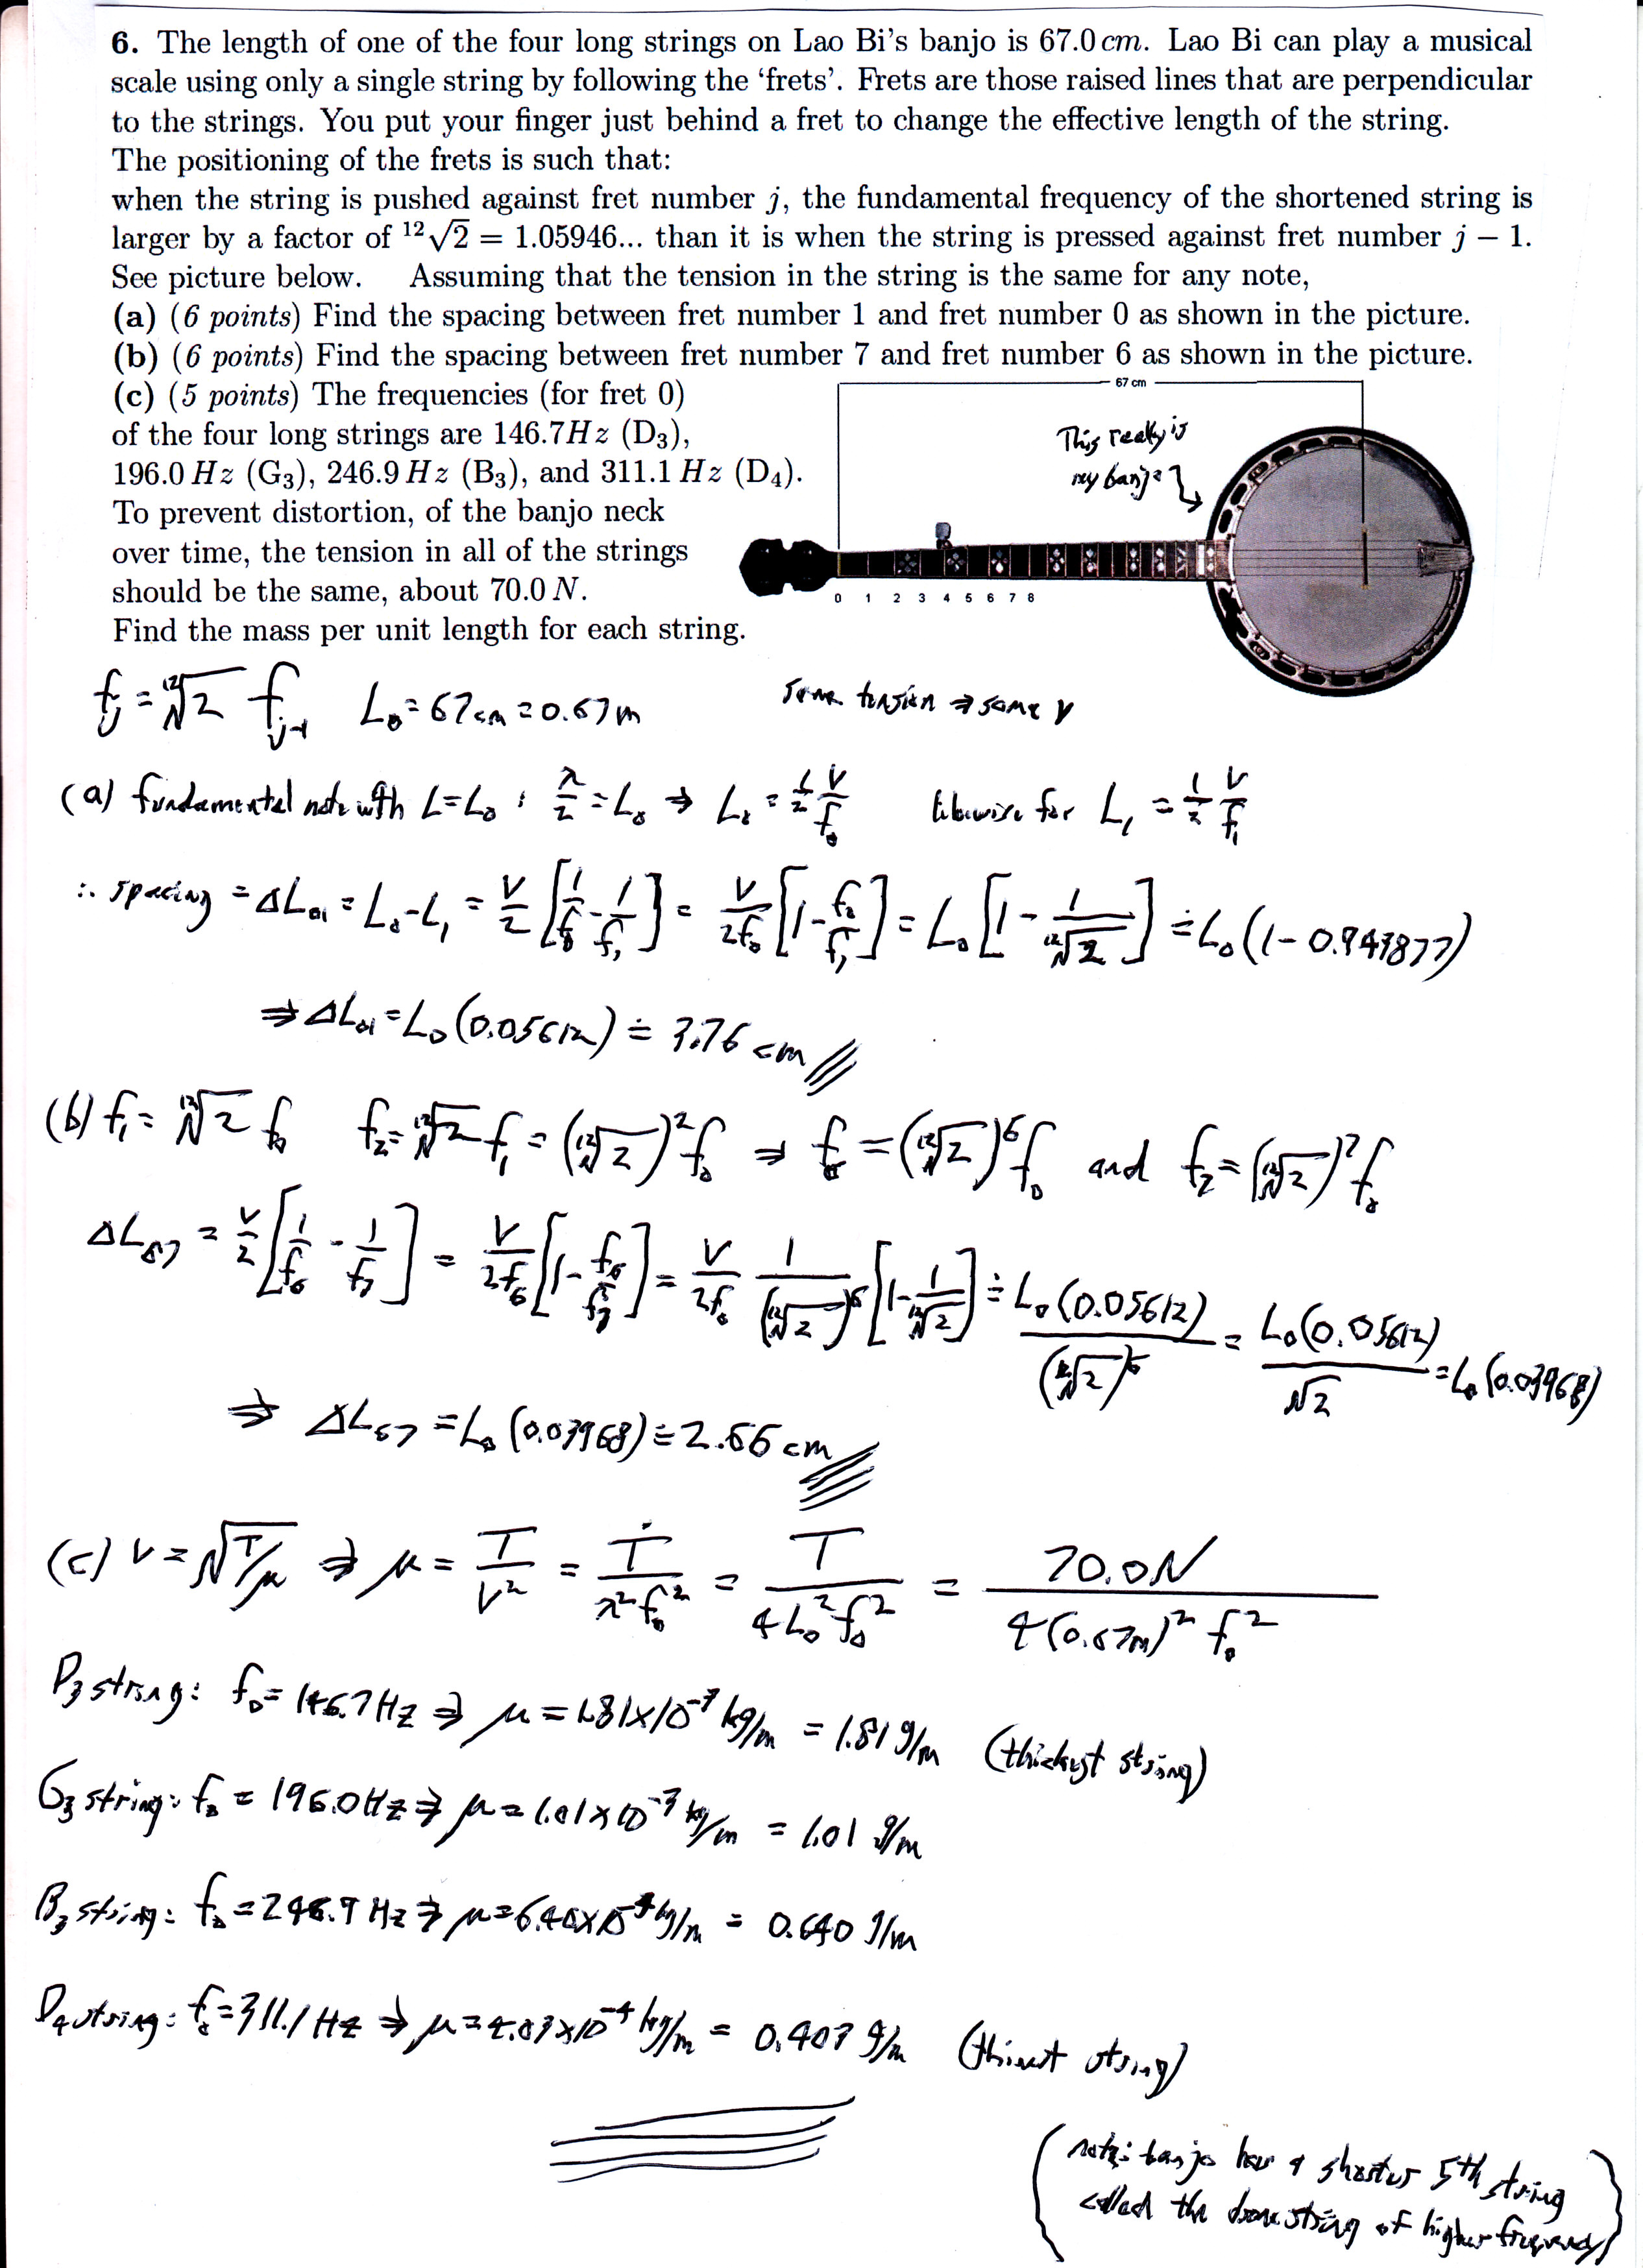 6. The length of one of the four long strings on Lao Bi's banjo is 67.0 cm. Lao Bi can play a musical
scale using only a single string by following the 'frets'. Frets are those raised lines that are perpendicular
to the strings. You put your finger just behind a fret to change the effective length of the string.
The positioning of the frets is such that:
when the string is pushed against fret number j, the fundamental frequency of the shortened string is
larger by a factor of ¹²√2 = 1.05946... than it is when the string is pressed against fret number j − 1.
See picture below. Assuming that the tension in the string is the same for any note,
(a) (6 points) Find the spacing between fret number 1 and fret number 0 as shown in the picture.
(b) (6 points) Find the spacing between fret number 7 and fret number 6 as shown in the picture.
(c) (5 points) The frequencies (for fret 0)
of the four long strings are 146.7Hz (D₃),
196.0 Hz (G₃), 246.9 Hz (B₃), and 311.1 Hz (D₄).
To prevent distortion, of the banjo neck
over time, the tension in all of the strings
should be the same, about 70.0 N.
Find the mass per unit length for each string.
67 cm
This really is
my banjo
0 1 2 3 4 5 6 7 8
f_j = ¹²√2 f_{j-1} L₀ = 67cm = 0.67m same tension ⇒ same v
(a) fundamental note with L=L₀ : λ/2 = L₀ ⇒ L₀ = 1/2 v/f₀ likewise for L₁ = 1/2 v/f₁
∴ spacing = ΔL₀₁ = L₀-L₁ = v/2 [1/f₀ - 1/f₁] = v/2f₀ [1 - f₀/f₁] = L₀ [1 - 1/¹²√2] ≐ L₀ (1 - 0.943877)
⇒ ΔL₀₁ = L₀ (0.05612) ≐ 3.76 cm
(b) f₁ = ¹²√2 f₀ f₂ = ¹²√2 f₁ = (¹²√2)² f₀ ⇒ f₆ = (¹²√2)⁶ f₀ and f₇ = (¹²√2)⁷ f₀
ΔL₆₇ = v/2 [1/f₆ - 1/f₇] = v/2f₆ [1 - f₆/f₇] = v/2f₀ 1/(¹²√2)⁶ [1 - 1/¹²√2] ≐ L₀ (0.05612)/(¹²√2)⁶ = L₀ (0.05612)/√2 = L₀ (0.03968)
⇒ ΔL₆₇ = L₀ (0.03968) ≐ 2.66 cm
(c) v = √T/μ ⇒ μ = T/v² = T/λ²f₀² = T/4L₀²f₀² = 70.0N/4(0.67m)² f₀²
D₃ string: f₀ = 146.7 Hz ⇒ μ = 1.81×10⁻³ kg/m = 1.81 g/m (thickest string)
G₃ string: f₀ = 196.0 Hz ⇒ μ = 1.01×10⁻³ kg/m = 1.01 g/m
B₃ string: f₀ = 246.9 Hz ⇒ μ = 6.40×10⁻⁴ kg/m = 0.640 g/m
D₄ string: f₀ = 311.1 Hz ⇒ μ = 4.03×10⁻⁴ kg/m = 0.403 g/m (thinest string)
(note: banjo has a shorter 5th string
called the drone string of higher frequency)